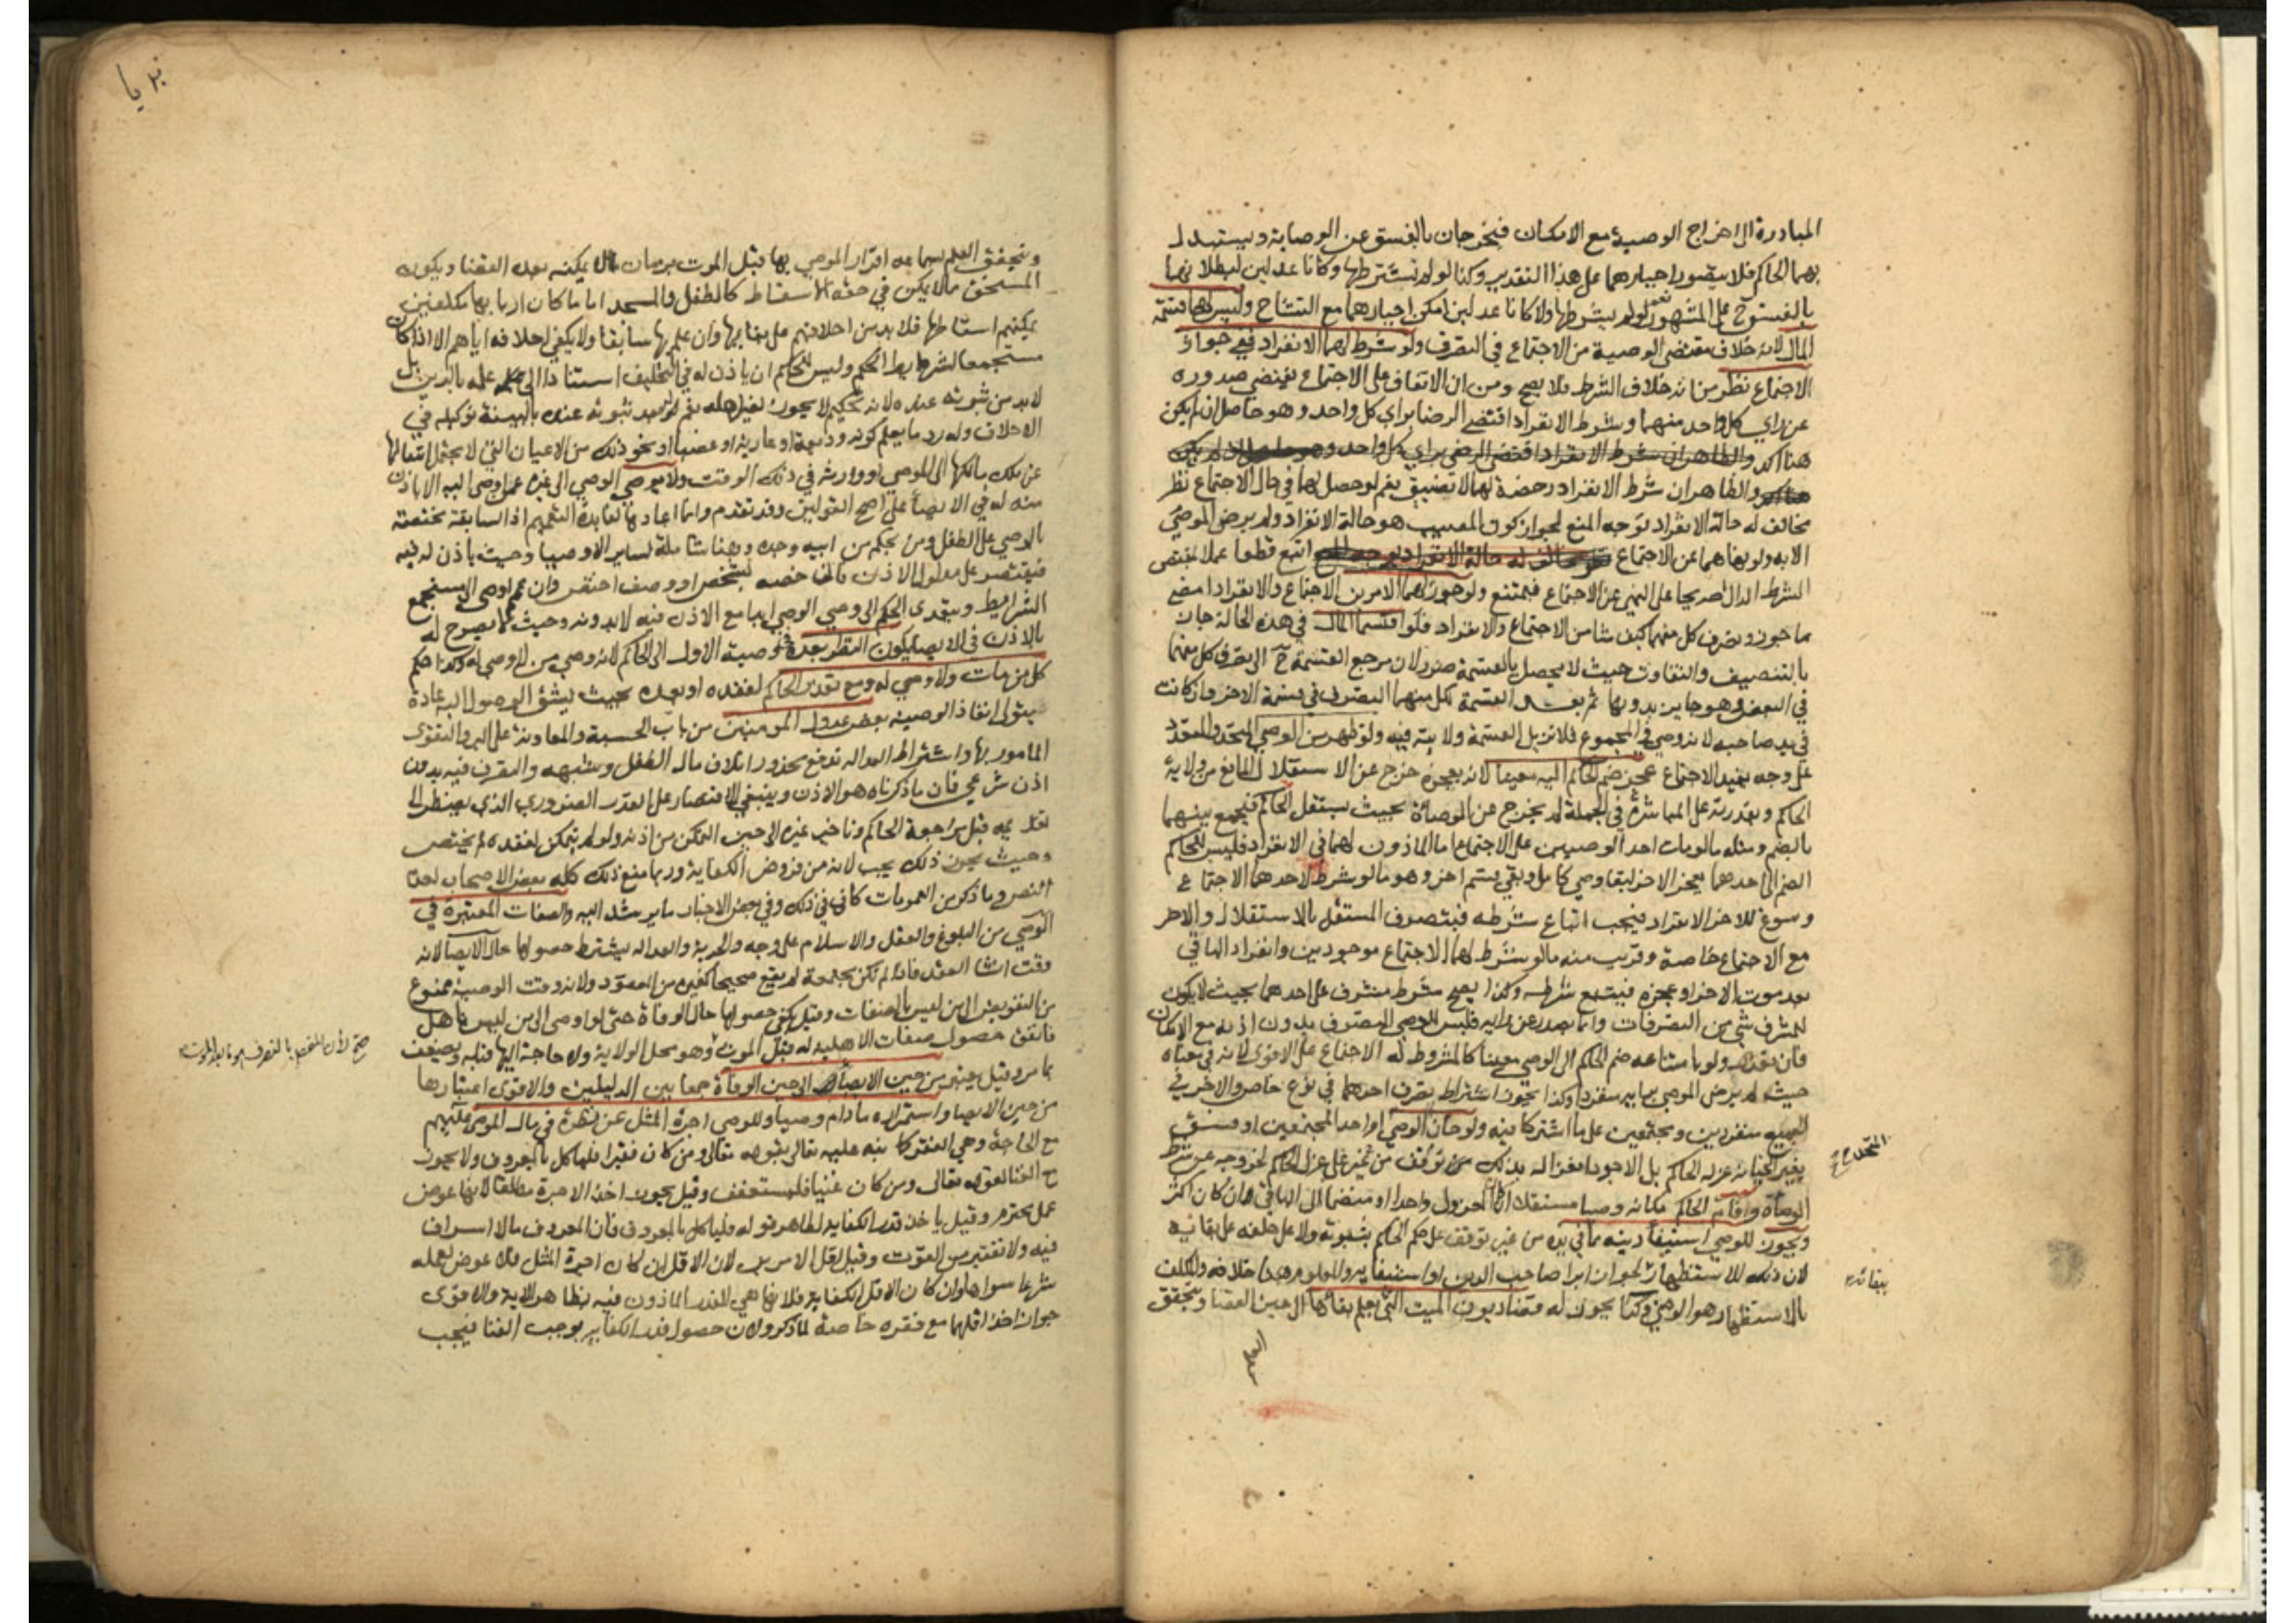 المبادرة الى اخراج الوصية مع الامكان فيخرجان بالفسق عن الوصاية ويستبدل
بهما الحاكم فلا يتصور اجبارهما على هذا التقدير وكذا لو لم نشترطها وكانا عدلين لبطلانها
بالفسق ح على المشهور نعم لو لم نشترطها ولا كانا عدلين امكن اجبارهما مع التشاح وليس لهما قسمة
المال لانه خلاف مقتضى الوصية من الاجتماع في التصرف ولو شرط لهما الانفراد ففي جواز
الاجتماع نظر من انه خلاف الشرط فلا يصح ومن ان الاتفاق على الاجتماع يقتضي صدوره
عن راي كل واحد منهما وشرط الانفراد اقتضى الرضا براي كل واحد وهو حاصل ان لم يكن
هنا اكد والظاهران شرط الانفراد اقتضى الرضى براي كل واحد وهو حاصل ان لم يكن
هنا اكد والظاهر ان شرط الانفراد رخصة لهما لا تضييق نعم لو حصل لهما في حال الاجتماع نظر
مخالف له حالة الانفراد توجه المنع لجواز كون المصيب هو حالة الانفراد ولم يرض الموصي
الا به ولو نهاهما عن الاجتماع اتبع قطعا عملا بمقتضى
الشرط الدال صريحا على النهي عن الاجتماع فيمتنع ولو جوز لهما الامرين الاجتماع والانفراد امضي
ما جوزه وتصرف كل منهما كيف شا من الاجتماع والانفراد فلو اقتسما المال في هذه الحالة جاز
بالتنصيف والتفاوت حيث لا يحصل بالقسمة ضرر لان مرجع القسمة ح الى تصرف كل منهما
في البعض وهو جايز بدونها ثم بعد القسمة لكل منهما التصرف في قسمة الاخر وان كانت
في يد صاحبه لانه وصي في المجموع فلا تزيل القسمة ولايته فيه ولو ظهر من الوصي المتحد والمتعدد
على وجه يفيد الاجتماع عجز ضم الحاكم اليه معينا لانه بعجزه خرج عن الاستقلال المانع من ولاية
الحاكم وبقدرته على المباشرة في الجملة لم يخرج عن الوصاية بحيث يستقل الحاكم فيجمع بينهما
بالضم ومثله ما لو مات احد الوصيين على الاجتماع اما الماذون لهما في الانفراد فليس للحاكم
الضم الى احدهما بعجز الاخر لبقا وصي كامل وبقي قسم اخر وهو ما لو شرط لاحدهما الاجتماع
وسوغ للاخر الانفراد فيجب اتباع شرطه فيتصرف المستقل بالاستقلال والاخر
مع الاجتماع خاصة وقريب منه ما لو شرط لهما الاجتماع موجودين وانفراد الباقي
بعد موت الاخر او عجزه فيتبع شرطه وكذا يصح شرط مشرف على احدهما بحيث لا يكون
للمشرف شي من التصرفات وانما تصدر عن رايه فليس للوصي التصرف بدون اذنه مع الامكان
فان تعذر ولو بامتناعه ضم الحاكم الى الوصي معينا كالمشروط له الاجتماع على الاقوى لانه في معناه
حيث لم يرض الموصي برايه منفردا وكذا يجوز اشتراط تصرف احدهما في نوع خاص والاخر في
الجميع منفردين ومجتمعين على ما اشتركا فيه ولو خان الوصي المتحد او احد المجتمعين او فسق
بغير الخيانة عزله الحاكم بل الاجود انعزاله بذلك من توقف من غير على عزل الحاكم لخروجه عن شرط
الوصاة واقام الحاكم مكانه وصيا مستقلا ان كان المعزول واحدا او منضما الى الباقي ان كان اكثر
ويجوز للوصي استيفا دينه مما في يده من غير توقف على حكم الحاكم بثبوته ولا على حلفه على بقائه
لان ذلك للاستظهار لجواز ابرا صاحب الدين او استيفايه والمعلوم هنا خلافه والمكلف
بالاستظهار هو الوصي وكذا يجوز له قضا ديون الميت التي يعلم بقائها الى حين القضا ويتحقق
المتحد صح
ببقائه
العلم
بريا
ويتحقق العلم بسماعه اقرار الموصي بها قبل الموت بزمان لا يمكنه بعده القضا ويكون
المستحق ممن لا يمكن في حقه الاسقاط كالطفل والمسجد اما ما كان اربابها مكلفين
يمكنهم اسقاطها فلا بد من احلافهم على بقائها وان علم بها سابقا ولا يكفي احلافه اياهم الا اذا كان
مستجمعا لشرايط الحكم وليس للحاكم ان ياذن له في التحليف استنادا الى علمه بالدين بل
لا بد من ثبوته عنده لانه تحكيم لا يجوز لغير اهله نعم له بعد ثبوته عنده بالبينة توكيله في
الاحلاف وله رد ما يعلم كونه وديعة او عارية او غصبا او نحو ذلك من الاعيان التي لا يحتمل انتقالها
عن ملك مالكها الى الموصي او وارثه في ذلك الوقت ولا يوصي الوصي الى غيره عمن اوصى اليه الا باذن
منه له في الايصا على اصح القولين وقد تقدم وانما اعادها لفايدة التعميم اذ السابقة مختصة
بالوصي على الطفل ومن بحكمه من ابيه وجده وهنا شاملة لساير الاوصيا وحيث ياذن له فيه
فيقتصر على مدلول الاذن فان خصه بشخص او وصف اختص وان عمم اوصى الى مستجمع
الشرايط ويتعدى الحكم الى وصي الوصي ابدا مع الاذن فيه لا بدونه وحيث لا يصرح له
بالاذن في الايصا يكون النظر بعده في وصية الاول الى الحاكم لانه وصي من لا وصي له وكذا حكم
كل من مات ولا وصي له ومع تعذر الحاكم لفقده او بعده بحيث يشق الوصول اليه عادة
يتولى انفاذ الوصية بعض عدول المومنين من باب الحسبة والمعاونة على البر والتقوى
المامور بها واشتراط العدالة يدفع محذور اتلاف مال الطفل وشبهه والتصرف فيه بدون
اذن شرعي فان ما ذكرناه هو الاذن وينبغي الاقتصار على القدر الضروري الذي يضطر الى
تقديمه قبل مراجعة الحاكم وتاخير غيره الى حين التمكن من اذنه ولو لم يتمكن لفقده لم يختص
وحيث يجوز ذلك يجب لانه من فروض الكفاية وربما منع ذلك كله بعض الاصحاب لعدم
النص وما ذكر من العمومات كاف في ذلك وفي بعض الاخبار ما يرشد اليه والصفات المعتبرة في
الوصي من البلوغ والعقل والاسلام على وجه والحرية والعدالة يشترط حصولها حال الايصا لانه
وقت انشا العقد فاذا لم تكن مجتمعة لم يقع صحيحا كغيره من العقود ولانه وقت الوصية ممنوع
من التفويض الى من ليس بالصفات وقيل يكفي حصولها حال الوفاة حتى لو اوصى الى من ليس باهل
فاتفق حصول صفات الاهلية له قبل الموت وهو محل الولاية ولا حاجة اليها قبله ويضعف
بما مر وقيل يعتبر من حين الايصا الى حين الوفاة جمعا بين الدليلين والاقوى اعتبارها
من حين الايصا واستمراره ما دام وصيا وللوصي اجرة المثل عن نظره في مال الموصى عليهم
مع الحاجة وهي الفقر كما نبه عليه تعالى بقوله تعالى ومن كان فقيرا فلياكل بالمعروف ولا يجوز
مع الغنا لقوله تعالى ومن كان غنيا فليستعفف وقيل يجوز اخذ الاجرة مطلقا لانها عوض
عمل محترم وقيل ياخذ قدر الكفاية لظاهر قوله فلياكل بالمعروف فان المعروف ما لا اسراف
فيه ولا تقتير من القوت وقيل اقل الامرين لان الاقل ان كان اجرة المثل فلا عوض لعمله
شرعا سواها وان كان الاقل الكفاية فلانها هي القدر الماذون فيه بظاهر الاية والاقوى
جواز اخذ اقلهما مع فقره خاصة لما ذكر ولان حصول قدر الكفاية يوجب الغنا فيجب